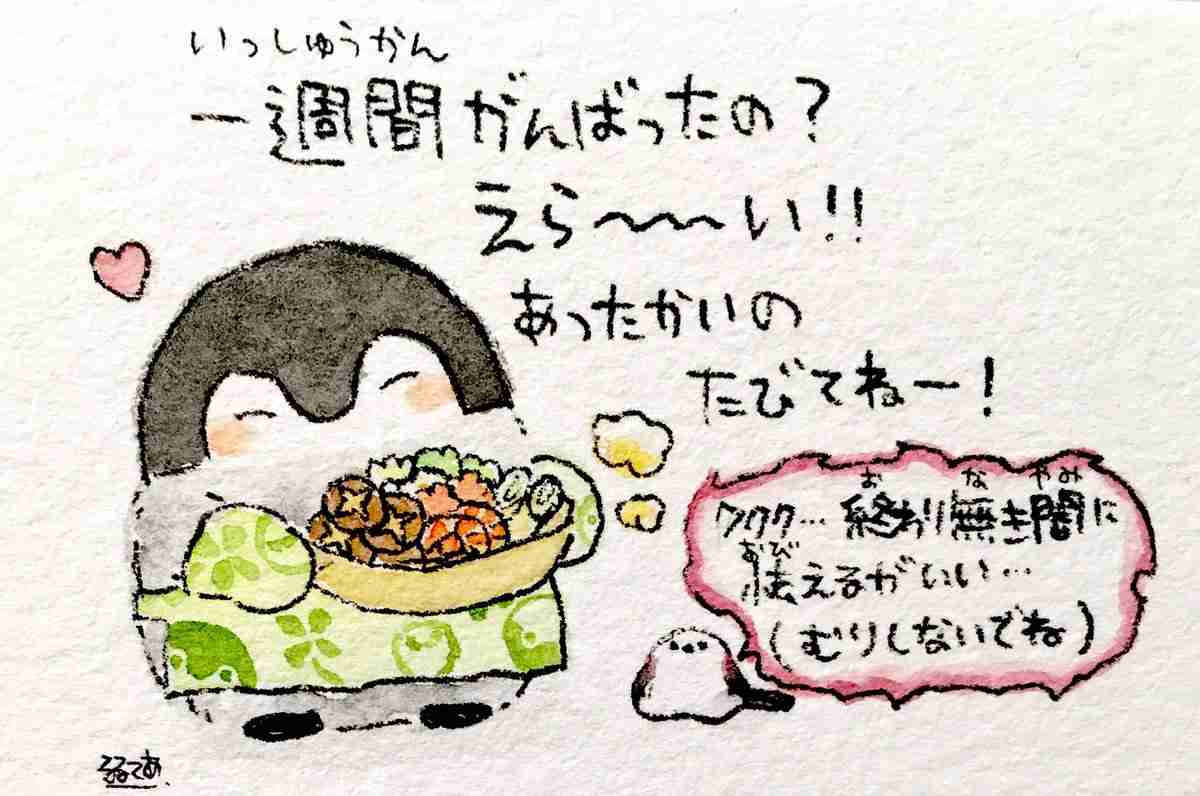 いっしゅうかん
一週間がんばったの?
えら〜〜い!!
あったかいの
たびてねー!
お な やみ
ククク…終わり無き闇に
おび
怯えるがいい…
(むりしないでね)
るるてあ